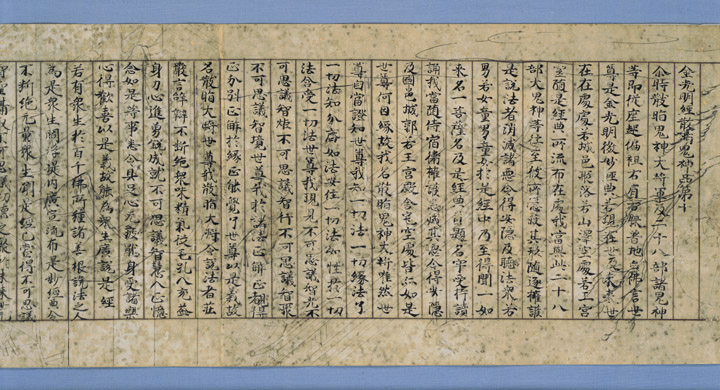 金光明經散脂鬼神品第十
尒時散脂鬼神大將軍及二十八部諸鬼神
等即從座起偏袒右肩右膝著地白佛言世
尊是金光明微妙經典若現在世及未來世
在在處處若城邑聚落若山澤空處若王宮
宅隨是經典所流布處我當與此二十八
部大鬼神等往至彼所隱蔽其形隨逐擁護
是說法者消滅諸惡令得安隱及聽法眾若
男若女童男童女於是經中乃至得聞一如
來名一菩薩名及是經典首題名字受持讀
誦我當隨侍宿衛擁護悉滅其惡令得安隱
及國邑城郭若王宮殿舍宅空處皆亦如是
世尊何因緣故我名散脂鬼神大將唯然世
尊自當證知世尊我知一切法一切緣法了
一切法知法分齊如法安住一切法如性於一切
法含受一切法世尊我現見不可思議智光不
可思議智炬不可思議智行不可思議智聚
不可思議智境世尊我於諸法正解正觀得
正分別正解於緣正能覺了世尊以是義故
名散脂大將世尊我散脂大將令說法者莊
嚴言辭辯不斷絕眾味精氣從毛孔入充益
身力心進勇銳成就不可思議智慧入正憶
念如是等事悉令具足心无疲猒身受諸樂
心得歡喜以是義故能為眾生廣說是經
若有眾生於百千佛所種諸善根說法之人
為是眾生閻浮提內廣宣流布是妙經典令
不斷絕无量眾生聞是經已當得不可思議